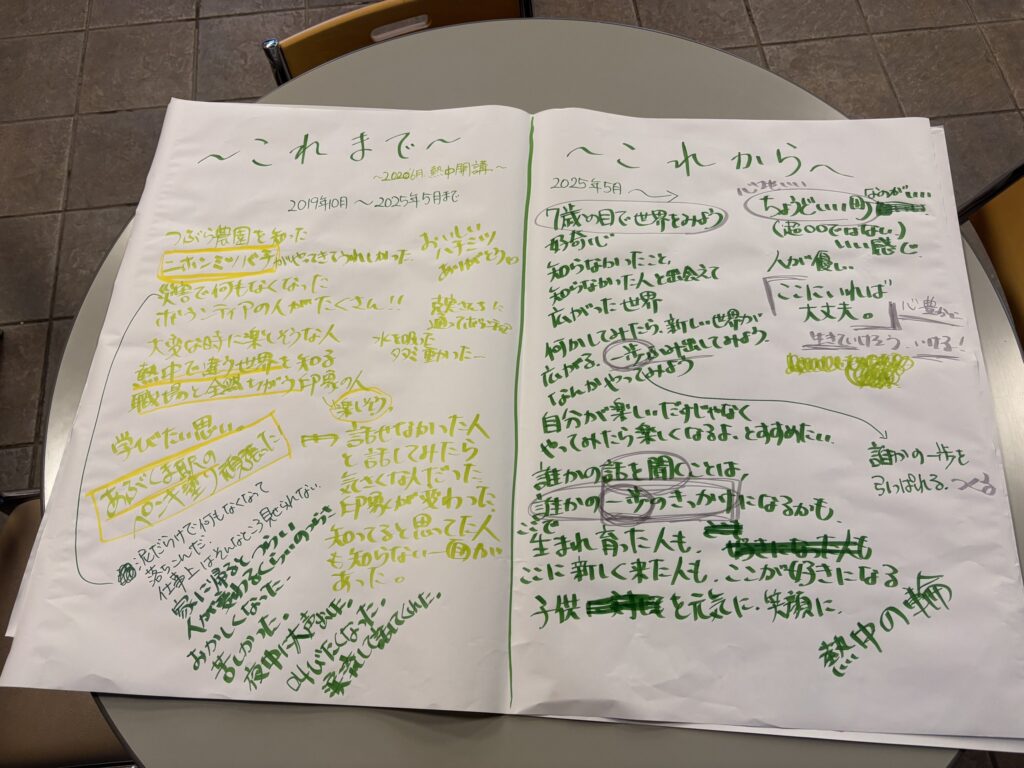 ～これまで～
～2020 6月 熱中開講～
2019年10月 ～2025年5月まで
つぶら農園を知った
ニホンミツバチがやってきてうれしかった
おいしい
ハチミツ
ありがとう。
災害で何もなくなった
ボランティアの人がたくさん!!
大変な時に楽しそうな人
水を
熱中で違う世界を知る
職場の人と全然ちがう印象の人
楽しそう。
学びたい思い。
あぶくま駅の
ペンキ塗り頑張った
話せなかった人
と話してみたら
気さくな人だった
印象が変わった
知ってると思ってた人
も知らない一面が
あった。
泥だらけで何もなくなって
落ちこんだ
仕事上はそんなところ見せられない
家に帰るとつらい
おかしくなった
苦しかった。
夜中に
叫びたくなった。
～これから～
2025年5月～→
7歳の目で世界をみよう
好奇心
知らなかったこと
知らなかった人と出会えて
広がった世界
何かしてみたら、新しい世界が
広がる。一歩ふみ出してみよう。
なんかやってみよう
自分が楽しいだけじゃなく
やってみたら楽しくなるよ、とすすめたい。
誰かの話を聞くことは、
誰かの一歩のきっかけになるかも。
ここで
生まれ育った人も、
ここに新しく来た人も、ここが好きになる
子供を元気に、笑顔に。
ちょうどいい町
(超○○ではない)
いい感じ
人が優しい
ここにいれば
大丈夫。
心豊かに
生きていけそう いける!
誰かの一歩を
引っぱれる。つくる
熱中の輪